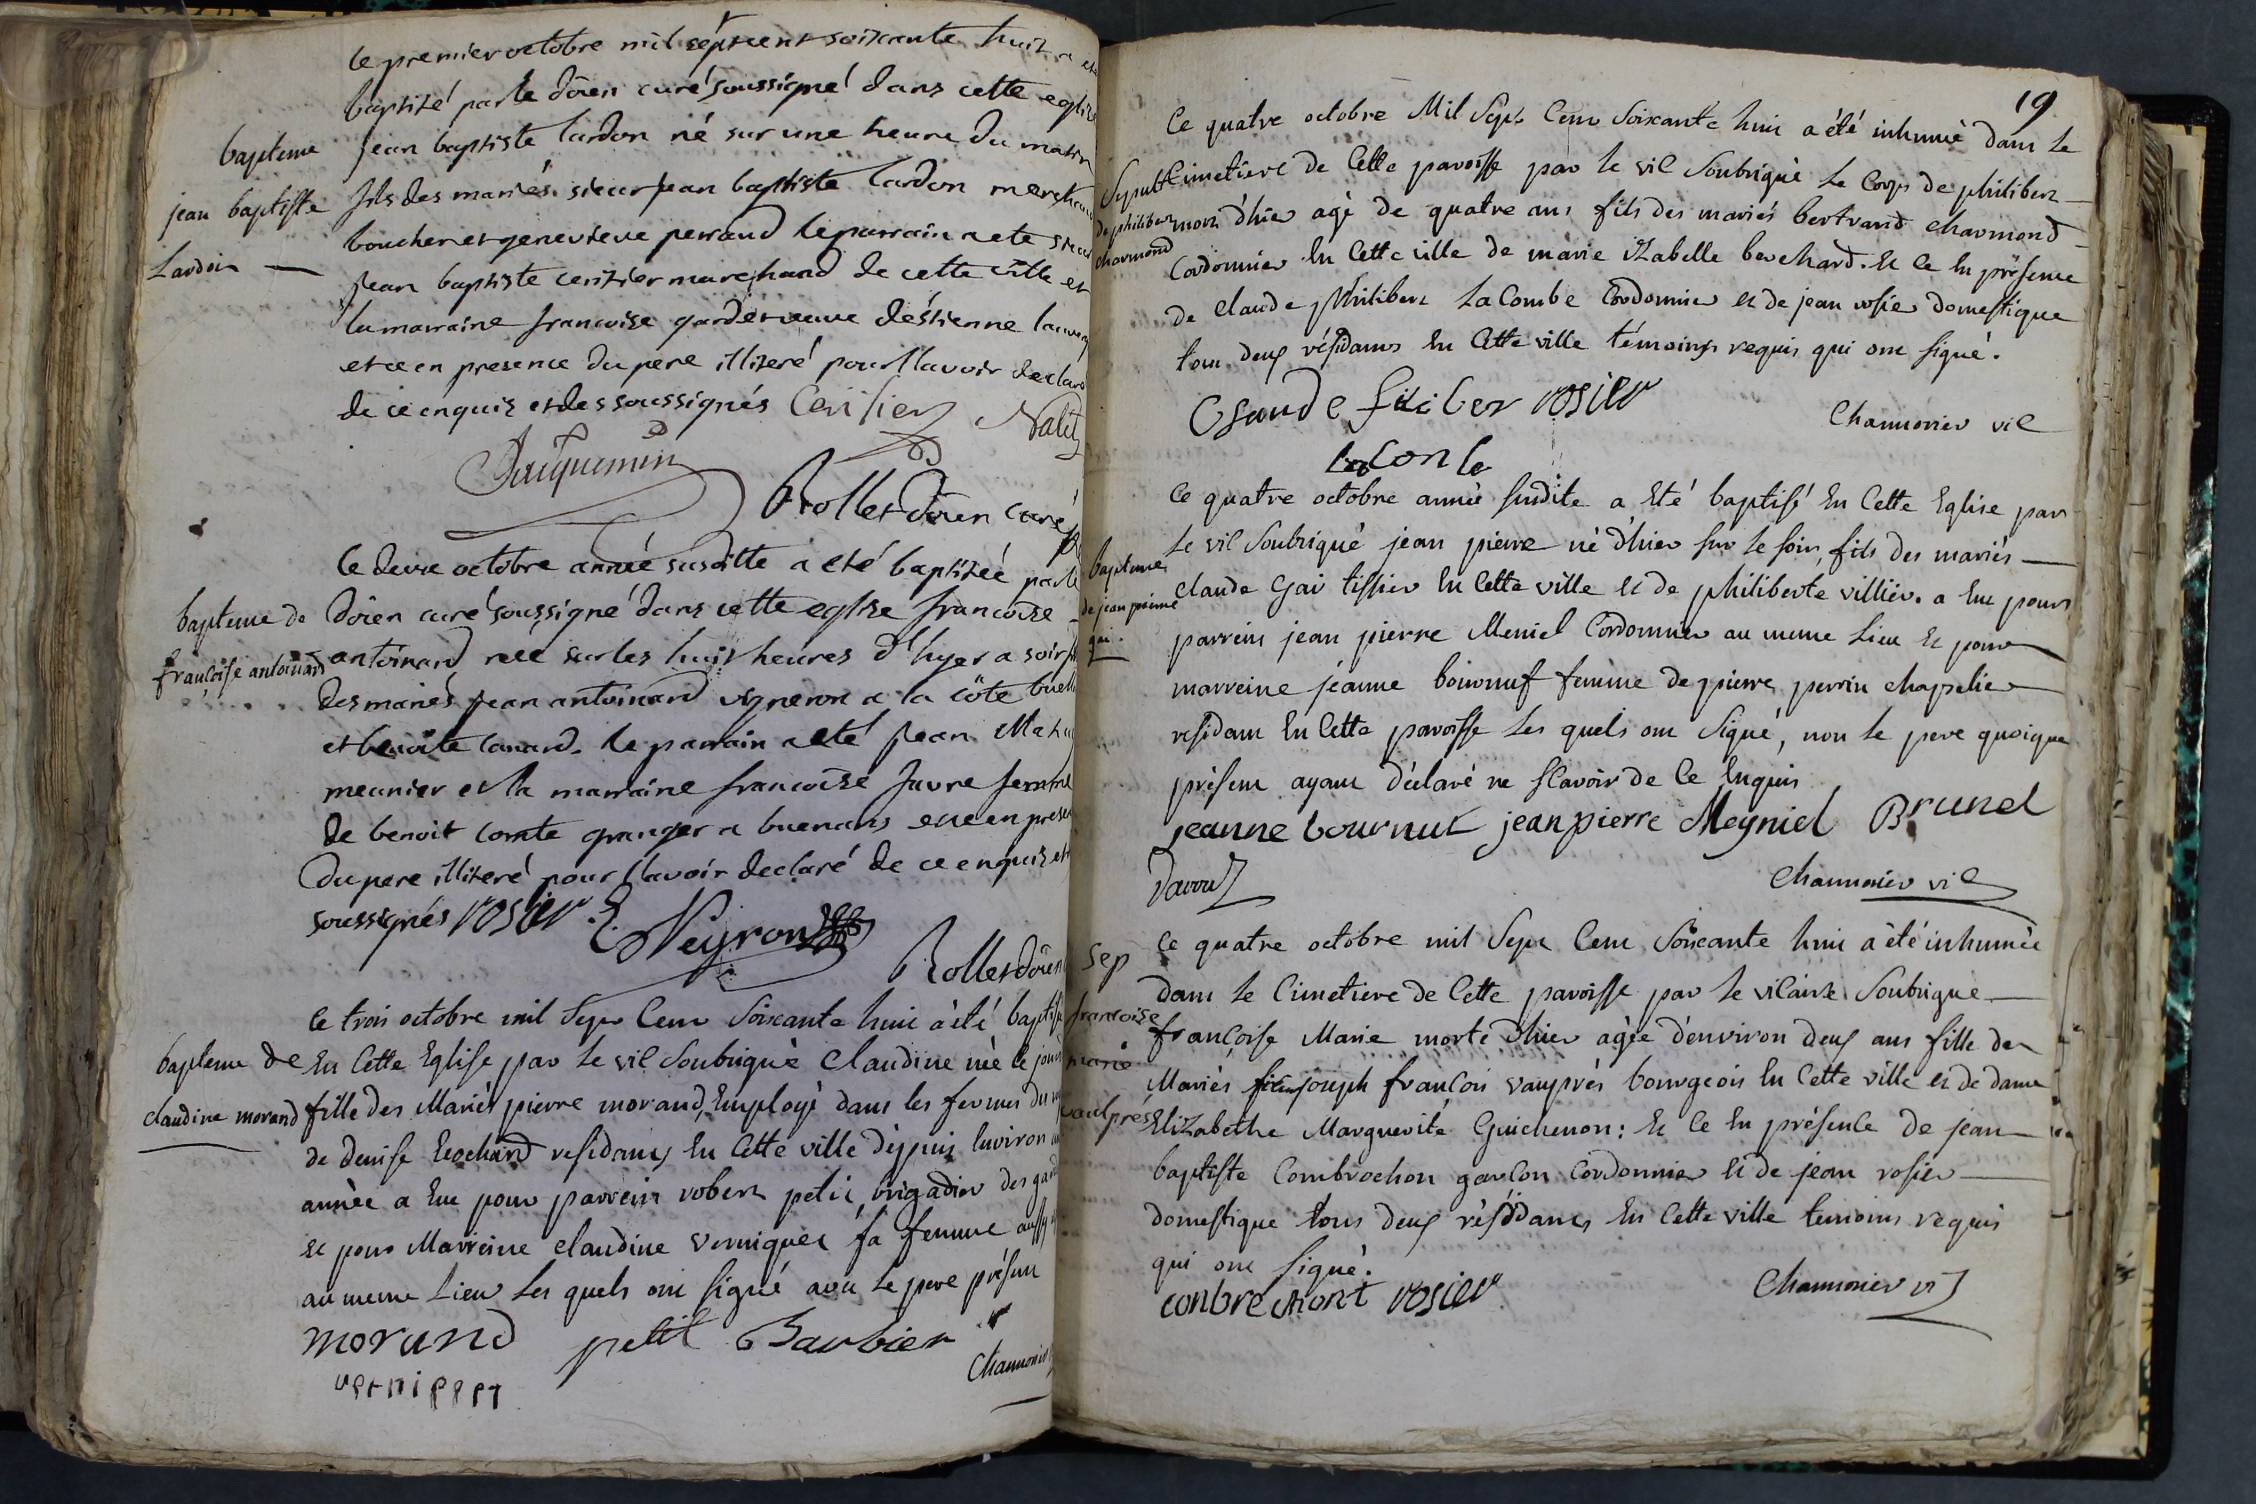 le premier octobre mil séptcent soixante huit a eté
baptizé par le döien curé soussigné dans cette eglize
bapteme
jean baptiste lardon né sur une heure du matin
jean baptiste
fils des mariés sieur jean baptiste lardon marchand
boucher et genevieve perraud le parrain a eté sieur
Lardon
jean baptiste cerizier marchand de cette ville et
la marraine francoise garde veuve d'éstienne
et ce en presence du pere illiteré pour l'avoir declaré
de ce enquis et des soussignés Cerisier
Jauquemin
Rollet döien curé
le deux octobre année susditte a eté baptizéé par le
bapteme de
döien curé soussigné dans cette eglise francoize
françoise antoinard
antoinard néé sur les huit heures d'hyer a soir
des mariés jean antoinard vigneron a la côte
et benoite canard. le parrain a eté jean
meunier et la marraine francoize favre femme
de benoit comte granger a buenans et ce en presence
du pere illiteré pour l'avoir declaré de ce enquis et
soussignés rosier Neyron
Rollet döien
le trois octobre mil Sept Cent Soixante huit à été baptisé
bapteme de
En Cette Eglise par le vic Soubsigné Claudine née le jour
claudine morand
fille des Mariés pierre morand, Employé dans les fermes du
de denise résidants En Cette ville depuis Environ
année a Eut pour parrein robert petit, brigadier des
et pour Marreine claudine verniquet sa femme aussy
au meme Lieu Les quels ont signé avec le pere présent
morand petit Barbier
Chaumonier
19
Ce quatre octobre Mil Sept Cent Soixante huit a été inhumé dans le
Sepult
Cimetiere de Cette paroisse par le vic Soubsigné le Corps de philibert
de philibert
mort d'hier agé de quatre ans fils des mariés bertrand charmond
charmond
Cordonnier En Cette ville de marie izabelle berchard. Et Ce En présence
de claude philibert LaCombe Cordonnier et de jean rosier domestique
tous deux résidants En Cette ville témoins requis qui ont signé.
Claude filiber rosier
Chaumonier vic
laconbe
Ce quatre octobre année susdite a Eté baptisé En Cette Eglise par
bapteme
Le vic Soubsigné jean pierre né d'hier sur le soir, fils des mariés
de jean pierre
claude Gai tissier En Cette ville et de philiberte villier. a Eut pour
gai.
parrein jean pierre Meniel Cordonnier au meme Lieu et pour
marreine jeanne bournuf femme de pierre perrin chapelier
residant En Cette paroisse Les quels ont signé, non le pere quoique
présent ayant déclaré ne sCavoir de Ce Enquis
jeanne bournut jean pierre Meyniel Brunel
Chaumonier vic
Sep
Ce quatre octobre mil Sept Cent Soixante huit a été inhumée
dans le Cimetiere de Cette paroisse par le viCaire Soubsigné
francoise
françoise Marie morte d'hier agée d'environ deux ans fille des
marie
Mariés sieur joseph françois vauprés bourgeois En Cette ville et de dame
vaulprés
Elizabethe Marguerite Guichenon: Et Ce En présence de jean
baptiste Combrochon garCon Cordonnier Et de jean rosier
domestique tous deux résidants En Cette ville temoins requis
qui ont signé.
conbrechont rosier
Chaumonier vic